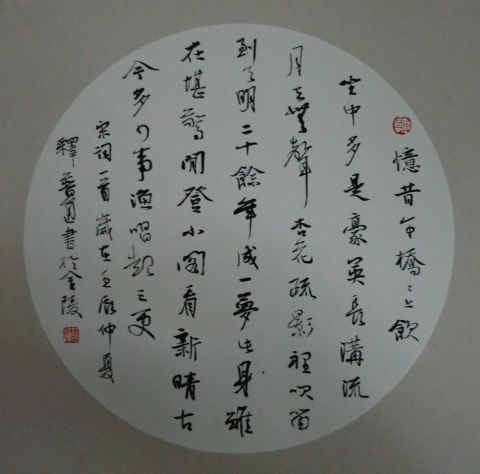 憶昔午橋〻上飲
坐中多是豪英長溝流
月去無聲杏花疏影裡吹笛
到天明二十餘年成一夢此身雖
在堪驚閒登小閣看新晴古
今多少事漁唱起三更
宋詞一首歲在壬辰仲夏
釋普書於金陵